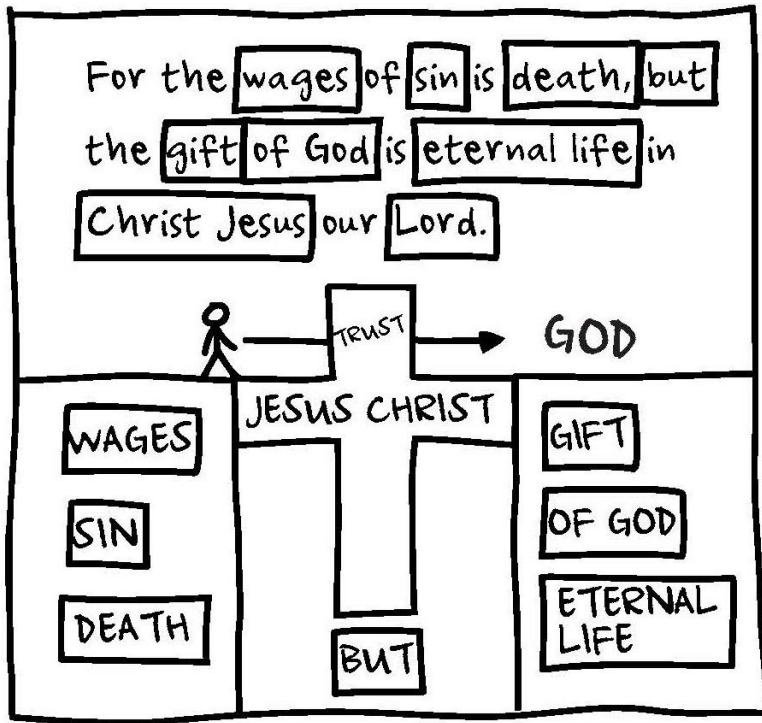 For the wages of sin is death, but
the gift of God is eternal life in
Christ Jesus our Lord.
TRUST
GOD
JESUS CHRIST
WAGES
SIN
DEATH
BUT
GIFT
OF GOD
ETERNAL
LIFE